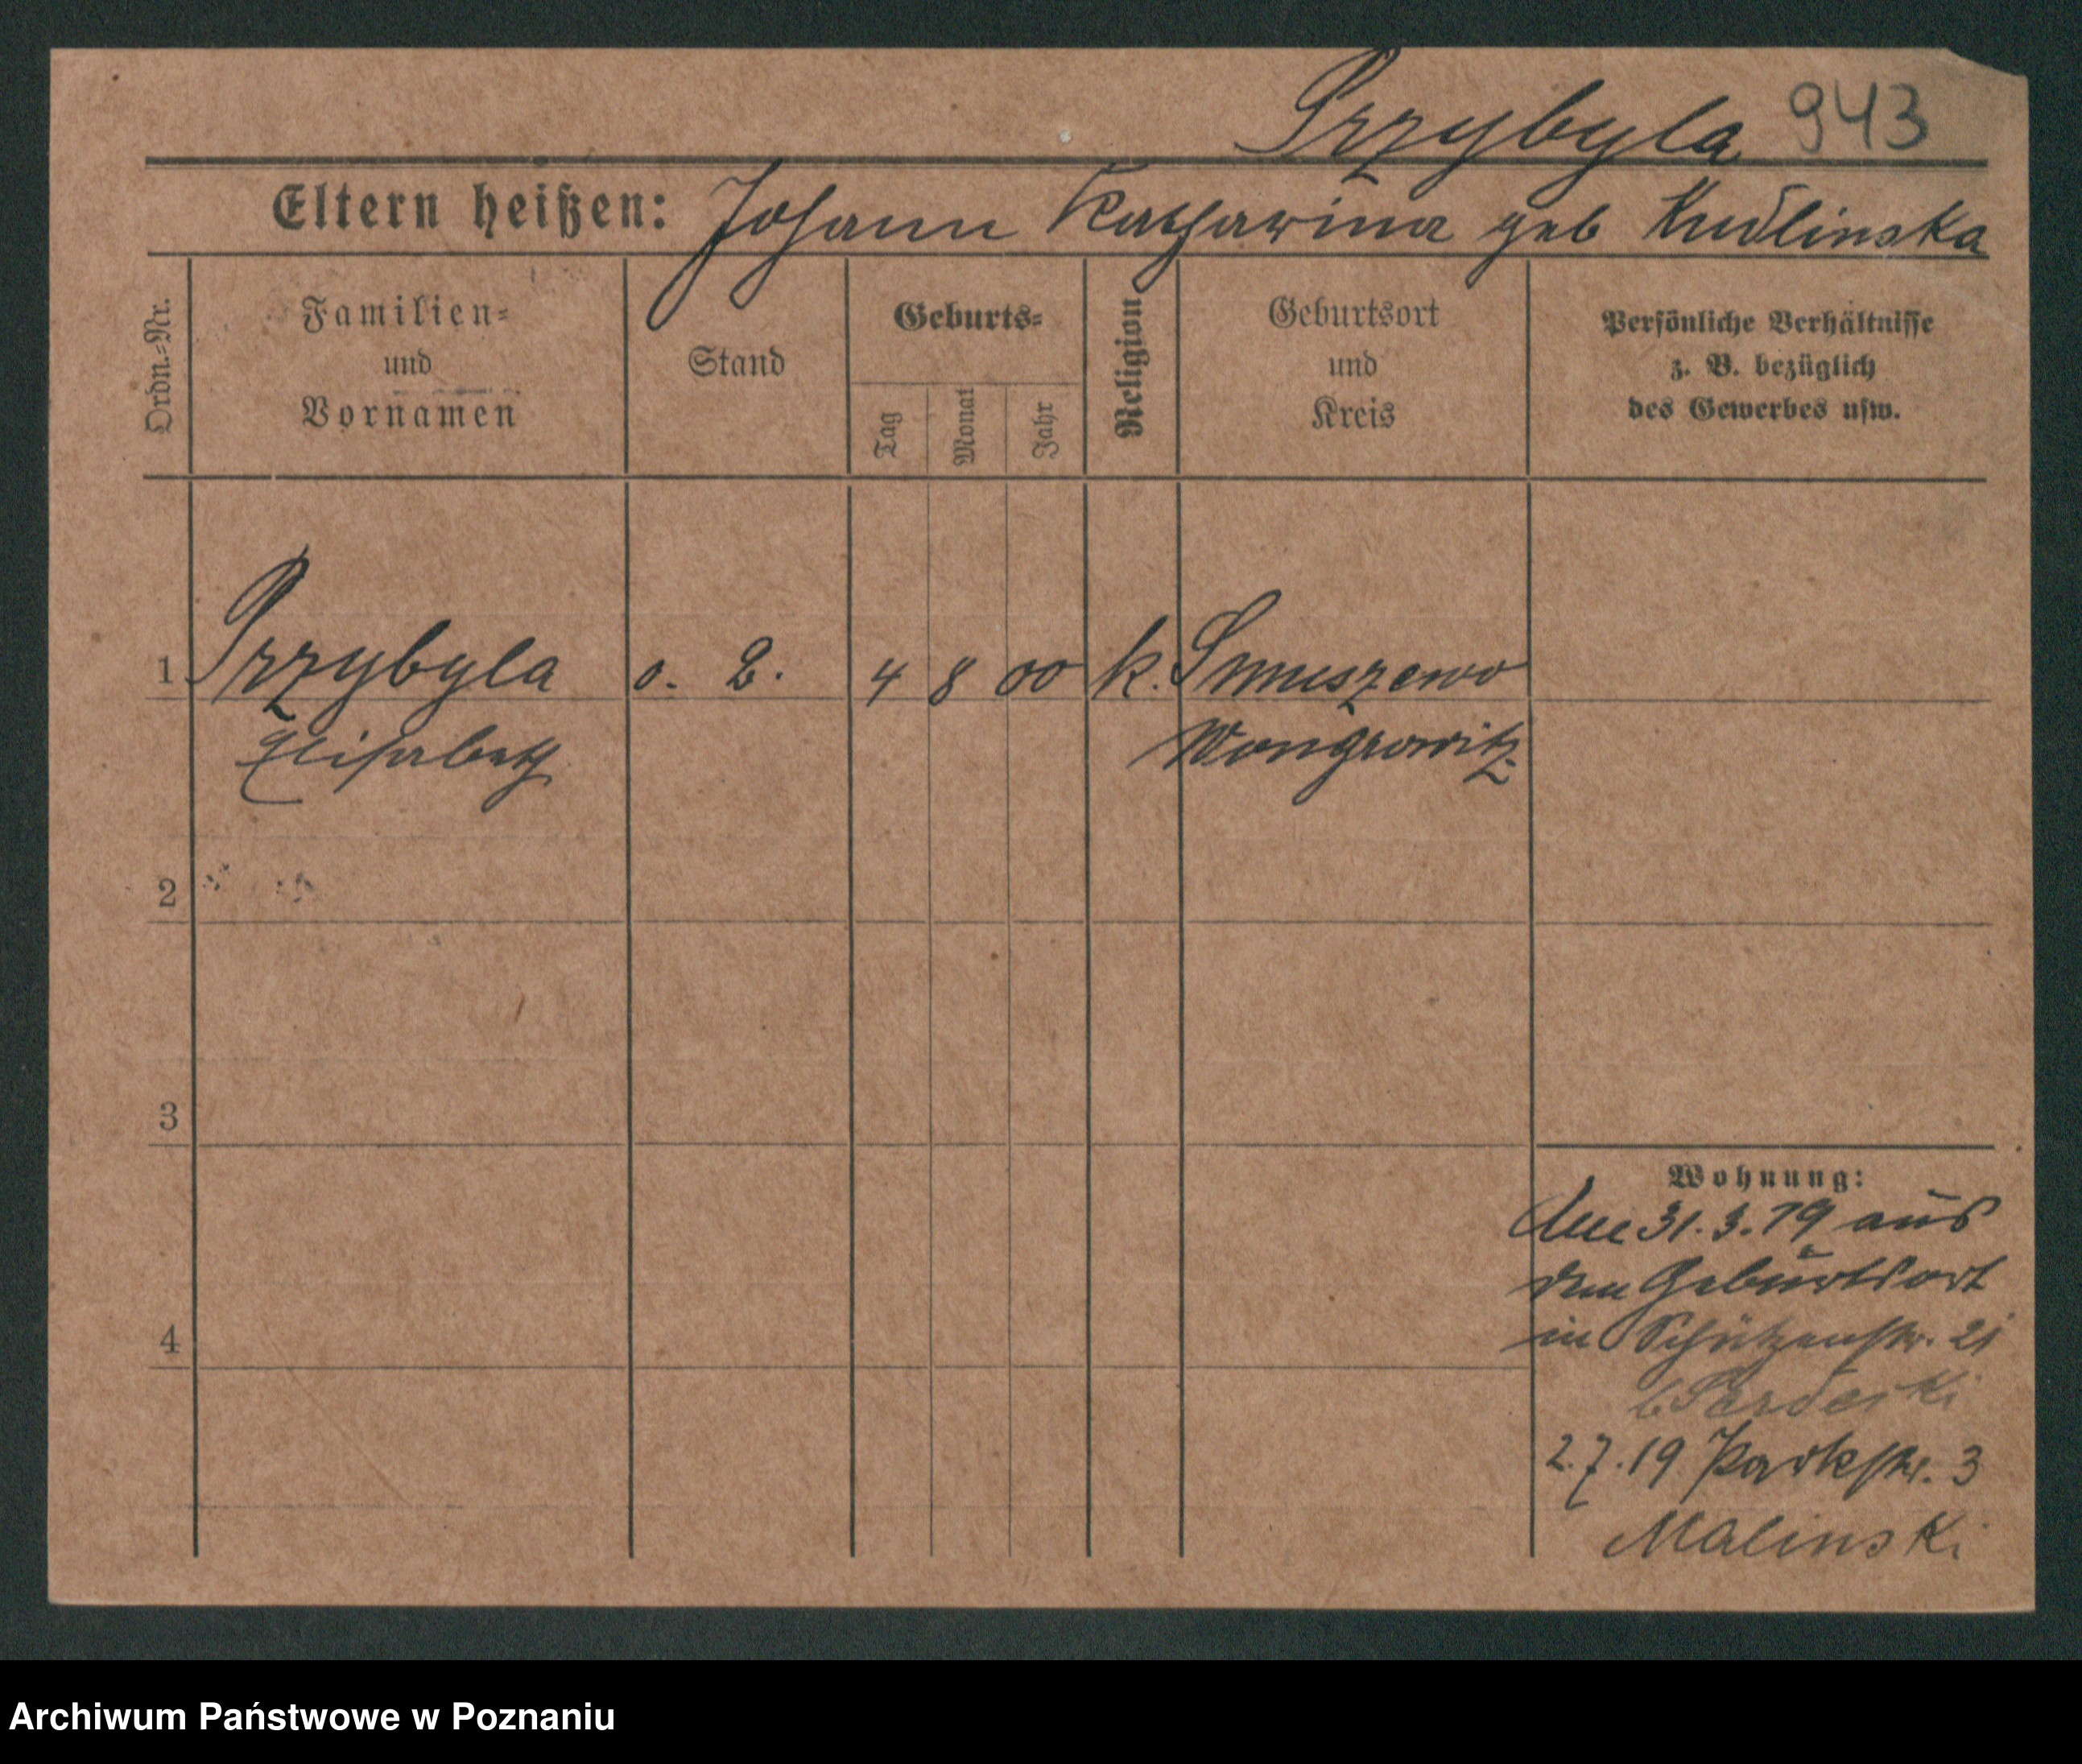 Przybyla 943
Eltern heißen: Johann Katharina geb Kudlinska
Ordn.=Nr.
Familien=
und
Vornamen
Stand
Geburts=
Tag
Monat
Jahr
Religion
Geburtsort
und
Kreis
Persönliche Verhältnisse
z. B. bezüglich
des Gewerbes usw.
1 Przybyla o. 4 8 00 k. Smuszewo
Elisabeth Wongrowitz
2
3
4
Wohnung:
31.3.19 aus
dem Geburtsort
in Schützenstr. 21
2.7.19 Parkstr. 3
Malinski
Archiwum Państwowe w Poznaniu